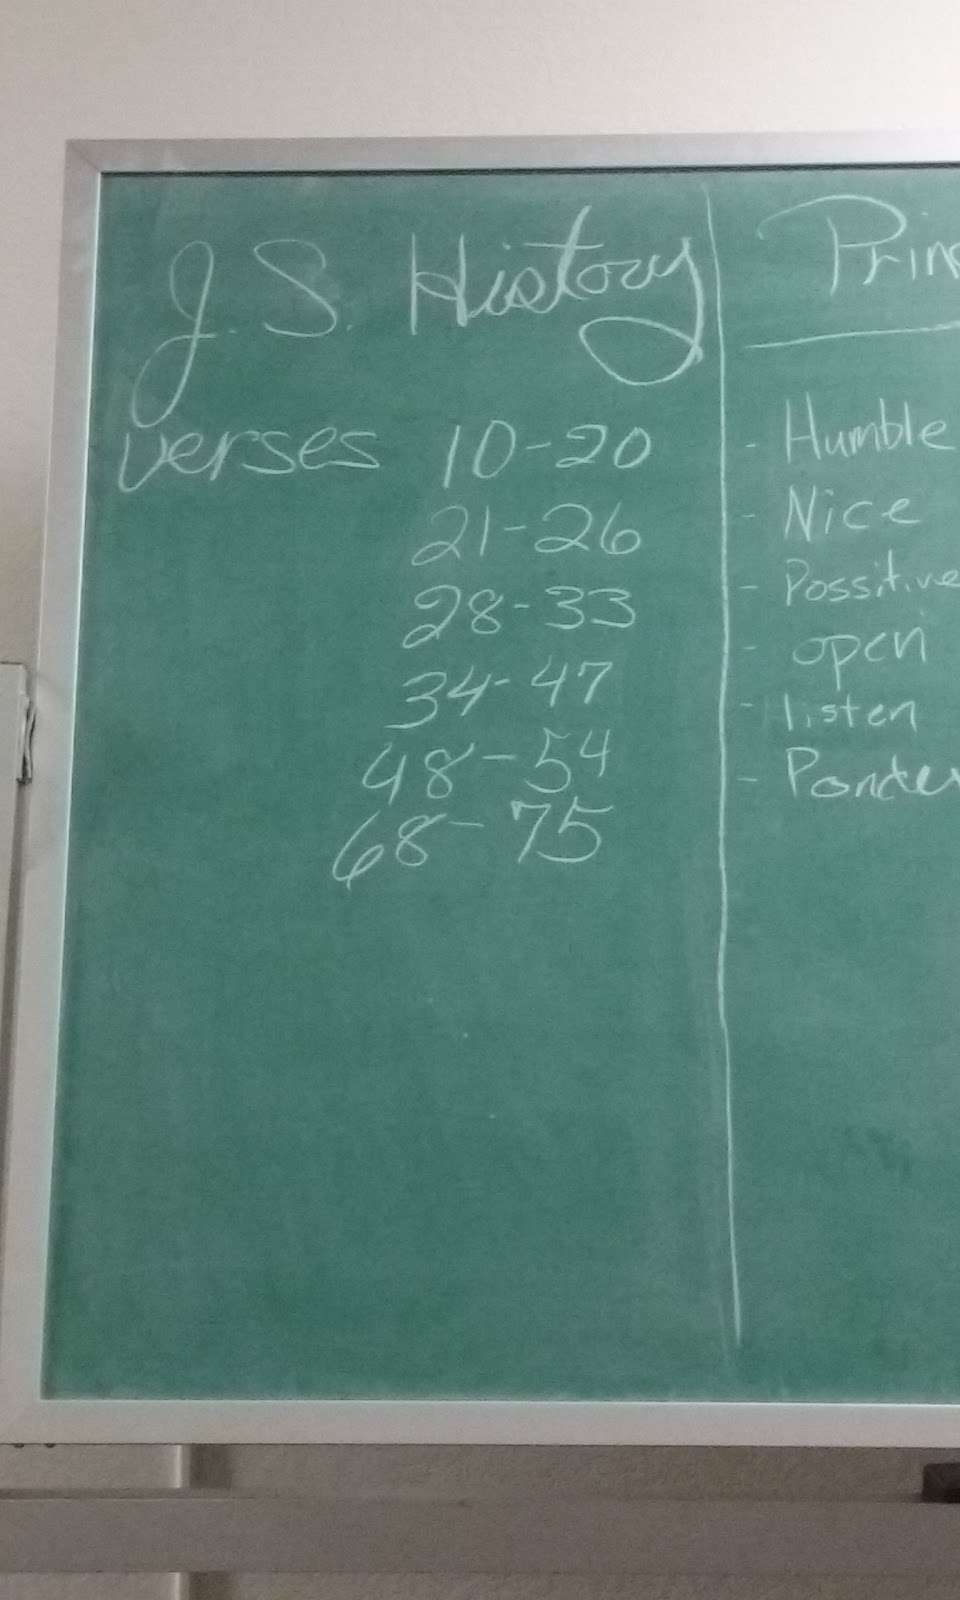 J.S. History
verses 10-20
21-26
28-33
34-47
48-54
68-75
Prin
- Humble
- Nice
- Possitive
- open
- listen
- Ponder